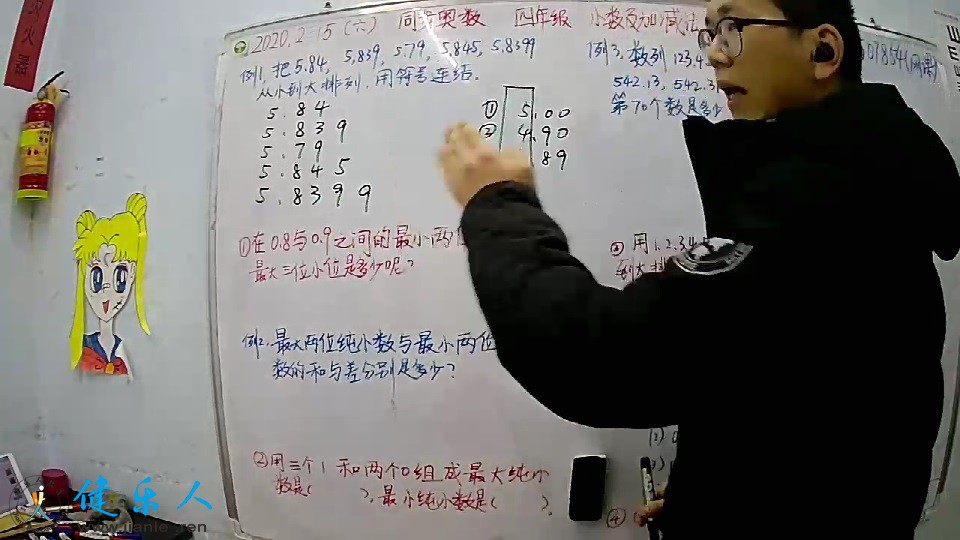 火
器
2020.2.15(六) 同步奥数 四年级 小数及加减法
例1.把5.84, 5.839, 5.79, 5.845, 5.8399
从小到大排列,用符号连结.
5.84
5.839
5.79
5.845
5.8399
① 5.00
② 4.90
89
例3.数列123.4
542.13, 542.3
第70个数是多少
(网课)
①在0.8与0.9之间的最小两位
最大三位小位是多少呢?
③用1.2.3.4
到大排
例2.最大两位纯小数与最小两位
数的和与差分别是多少?
②用三个1和两个0组成最大纯小
数是( ),最小纯小数是( ).
④
健乐人